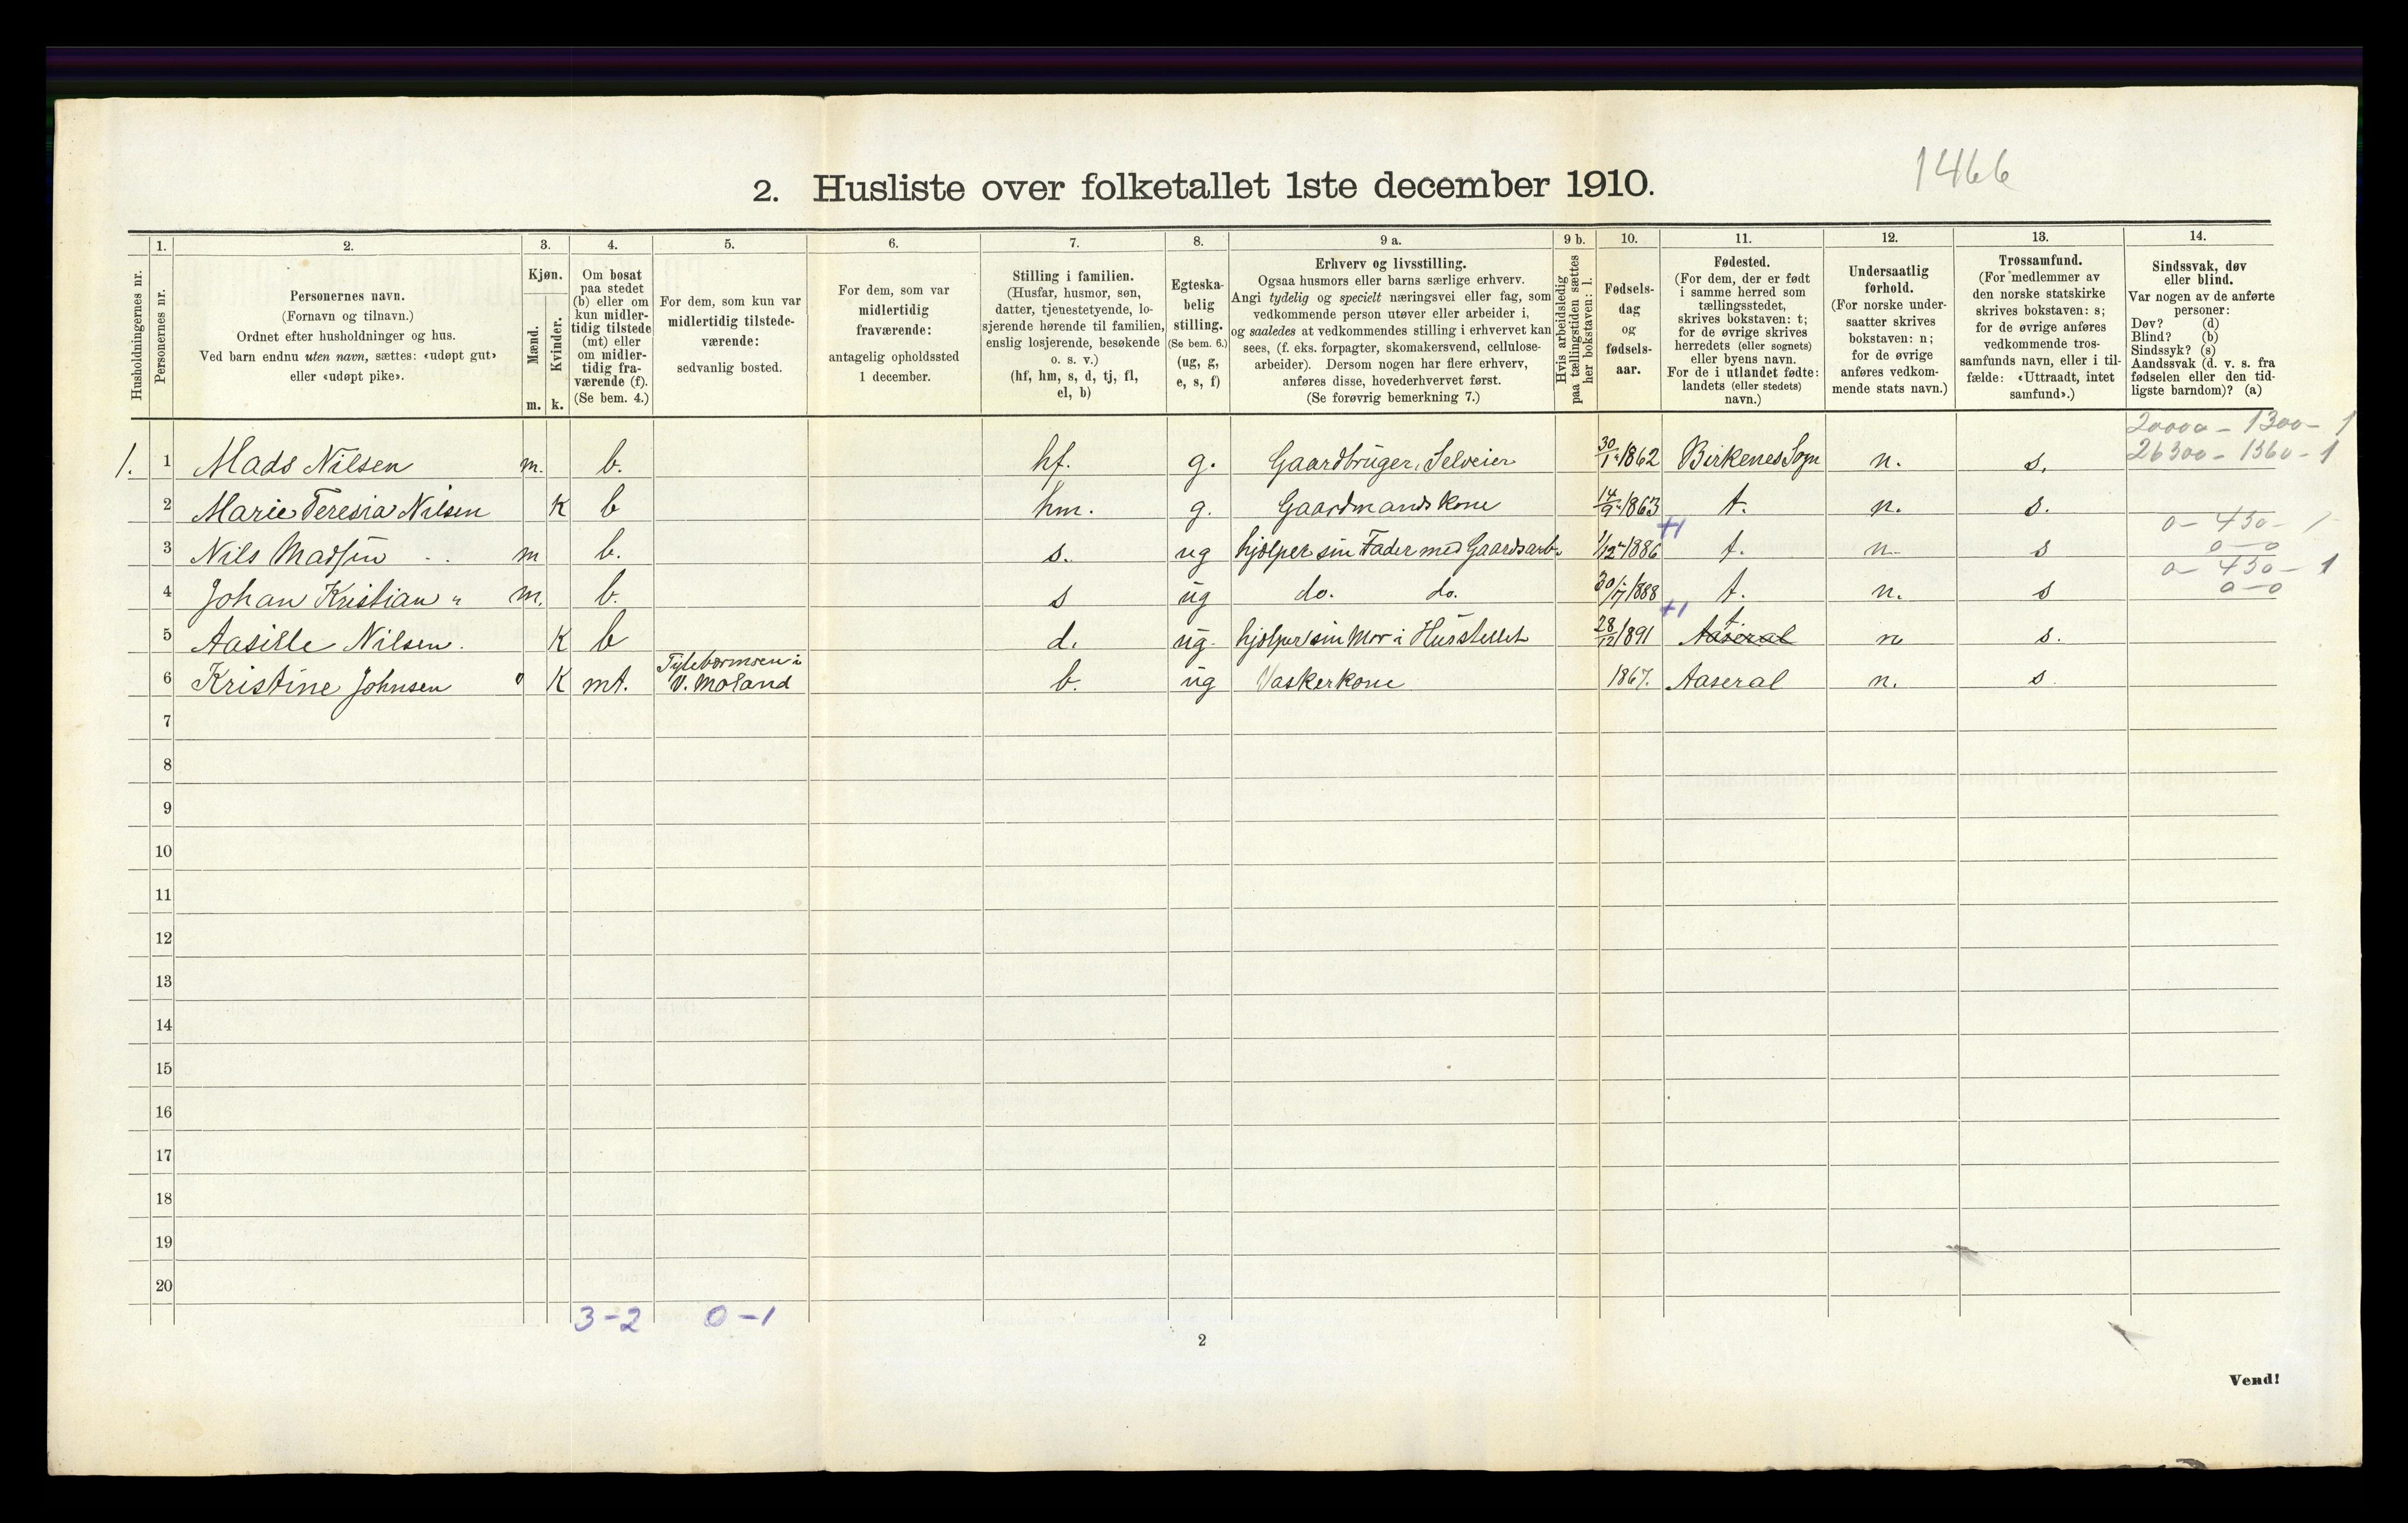 1466
2. Husliste over folketallet 1ste december 1910.
1. 2. 3. 4. 5. 6. 7. 8. 9 a. 9 b. 10. 11. 12. 13. 14.
Husholdningernes nr.
Personernes nr.
Personernes navn.
(Fornavn og tilnavn.)
Ordnet efter husholdninger og hus.
Ved barn endnu uten navn, sættes: «udøpt gut»
eller «udøpt pike».
Kjøn.
Mænd.
Kvinder.
m. k.
Om bosat
paa stedet
(b) eller om
kun midler-
tidig tilstede
(mt) eller
om midler-
tidig fra-
værende (f).
(Se bem. 4.)
For dem, som kun var
midlertidig tilstede-
værende:
sedvanlig bosted.
For dem, som var
midlertidig
fraværende:
antagelig opholdssted
1 december.
Stilling i familien.
(Husfar, husmor, søn,
datter, tjenestetyende, lo-
sjerende hørende til familien,
enslig losjerende, besøkende
o. s. v.)
(hf, hm, s, d, tj, fl,
el, b)
Egteska-
belig
stilling.
(Se bem. 6.)
(ug, g,
e, s, f)
Erhverv og livsstilling.
Ogsaa husmors eller barns særlige erhverv.
Angi tydelig og specielt næringsvei eller fag, som
vedkommende person utøver eller arbeider i,
og saaledes at vedkommendes stilling i erhvervet kan
sees, (f. eks. forpagter, skomakersvend, cellulose-
arbeider). Dersom nogen har flere erhverv,
anføres disse, hovederhvervet først.
(Se forøvrig bemerkning 7.)
Hvis arbeidsledig
paa tællingstiden sættes
her bokstaven: l.
Fødsels-
dag
og
fødsels-
aar.
Fødested.
(For dem, der er født
i samme herred som
tællingsstedet,
skrives bokstaven: t;
for de øvrige skrives
herredets (eller sognets)
eller byens navn.
For de i utlandet fødte:
landets (eller stedets)
navn.)
Undersaatlig
forhold.
(For norske under-
saatter skrives
bokstaven: n;
for de øvrige
anføres vedkom-
mende stats navn.)
Trossamfund.
(For medlemmer av
den norske statskirke
skrives bokstaven: s;
for de øvrige anføres
vedkommende tros-
samfunds navn, eller i til-
fælde: «Uttraadt, intet
samfund».)
Sindssvak, døv
eller blind.
Var nogen av de anførte
personer:
Døv? (d)
Blind? (b)
Sindssyk? (s)
Aandssvak (d. v. s. fra
fødselen eller den tid-
ligste barndom)? (a)
20000 - 1300 - 1
1. 1 Mads Nilsen m. b. hf. g. Gaardbruger, Selveier 30/1 1862 Birkenes Sogn n. s. 26300 - 1360 - 1
2 Marie Teresia Nilsen K b hm. g. Gaardmandskone 14/9 1863 t. n. s.
+1 0 - 430 - 1
3 Nils Madsen m b. s. ug hjælper sin Fader med Gaardsarb. 1/12 1886 t. n. s 0 - 0
0 - 430 - 1
4 Johan Kristian " m. b. s ug do. do. 30/7 1888 t. n. s 0 - 0
+1 t
5 Aasille Nilsen. K b d. ug. hjælper sin Mor i Husstellet 28/12 1891 Aaseral n s.
i
6 Kristine Johnsen 0 K mt. V. Moland b. ug Vaskerkone 1867. Aaseral n. s
7
8
9
10
11
12
13
14
15
16
17
18
19
20
3 - 2 0 - 1
2
Vend!